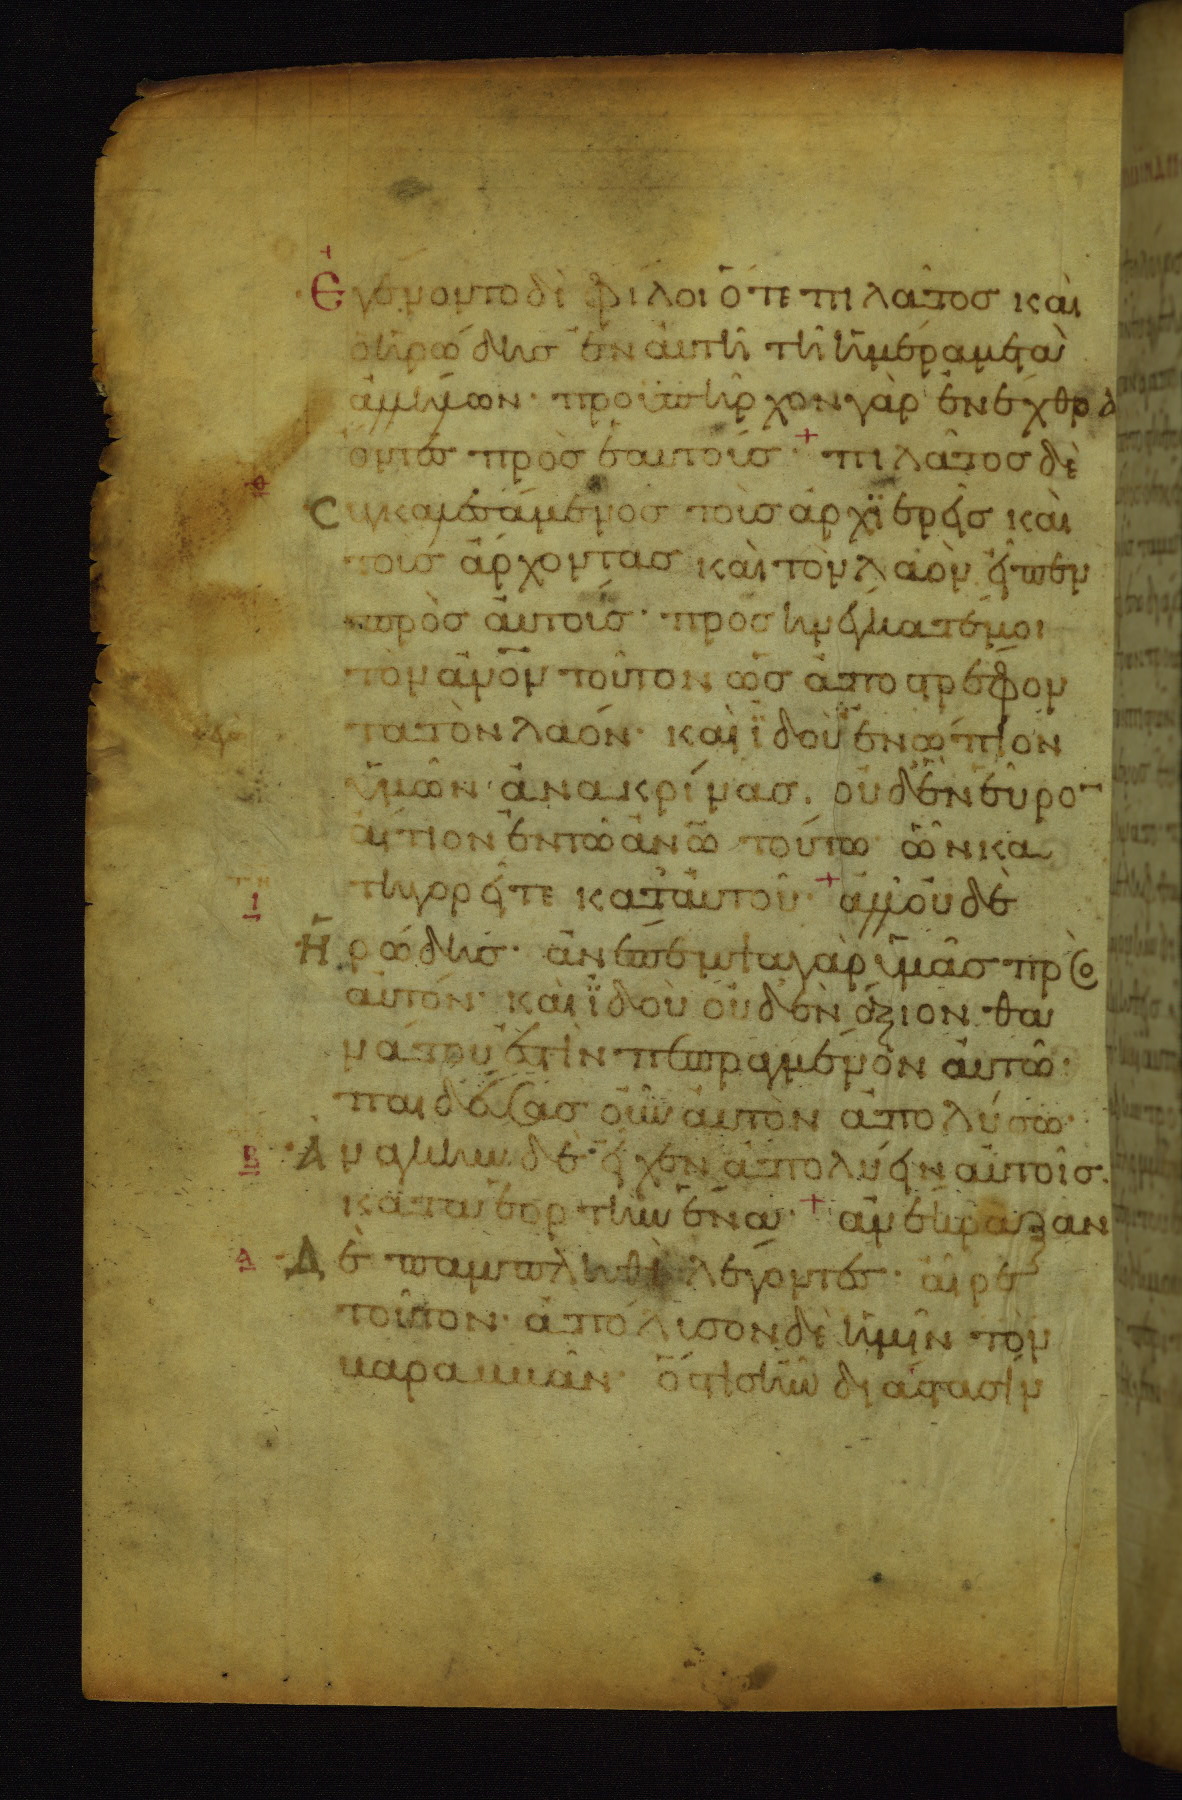 Ἐγένοντο δὲ φίλοι ὅ τε πιλάτος καὶ
ὁ ἡρώδης ἐν αὐτῆ τῆ ἡμέρα μετὰ
ἀλλήλων· προϋπῆρχον γὰρ ἐν ἔχθρα
ὄντες πρὸς ἑαυτούς· + πιλάτος δὲ
Συγκαλεσάμενος τοὺς ἀρχϊερεῖς καὶ
τοὺς ἄρχοντας καὶ τὸν λαὸν εἶπεν
πρὸς αὐτούς· προσηνέγκατέ μοι
τὸν ἄνον τοῦτον ὡς ἀποστρέφον
τα τὸν λαόν· καὶ ϊδοὺ ἐνώπιον
ὑμῶν ἀνακρίνας. οὐδὲν εὗρον
αἴτιον ἐν τῶ ἀνω τούτω ὧν κα
τηγορεῖτε κατ' αὐτοῦ· + ἀλλ' οὐδὲ
Ἡρώδης· ἀνέπεμψα γὰρ ὑμᾶς πρὸς
αὐτόν· καὶ ϊδοὺ οὐδὲν ἄξιον θα
νάτου ἐστὶν πεπραγμένον αὐτῶ·
παιδεύσας οὖν αὐτὸν ἀπολύσω·
Ἀνάγκην δὲ εἶχεν ἀπολύειν αὐτοῖς.
κατὰ ἑορτὴν ἕνα· + ἀνέκραξαν
Δὲ παμπληθεὶ λέγοντες· αἶρε
τοῦτον· ἀπόλυσον δὲ ἡμῖν τὸν
βαραββᾶν· ὅστις ἦν διὰ στάσιν